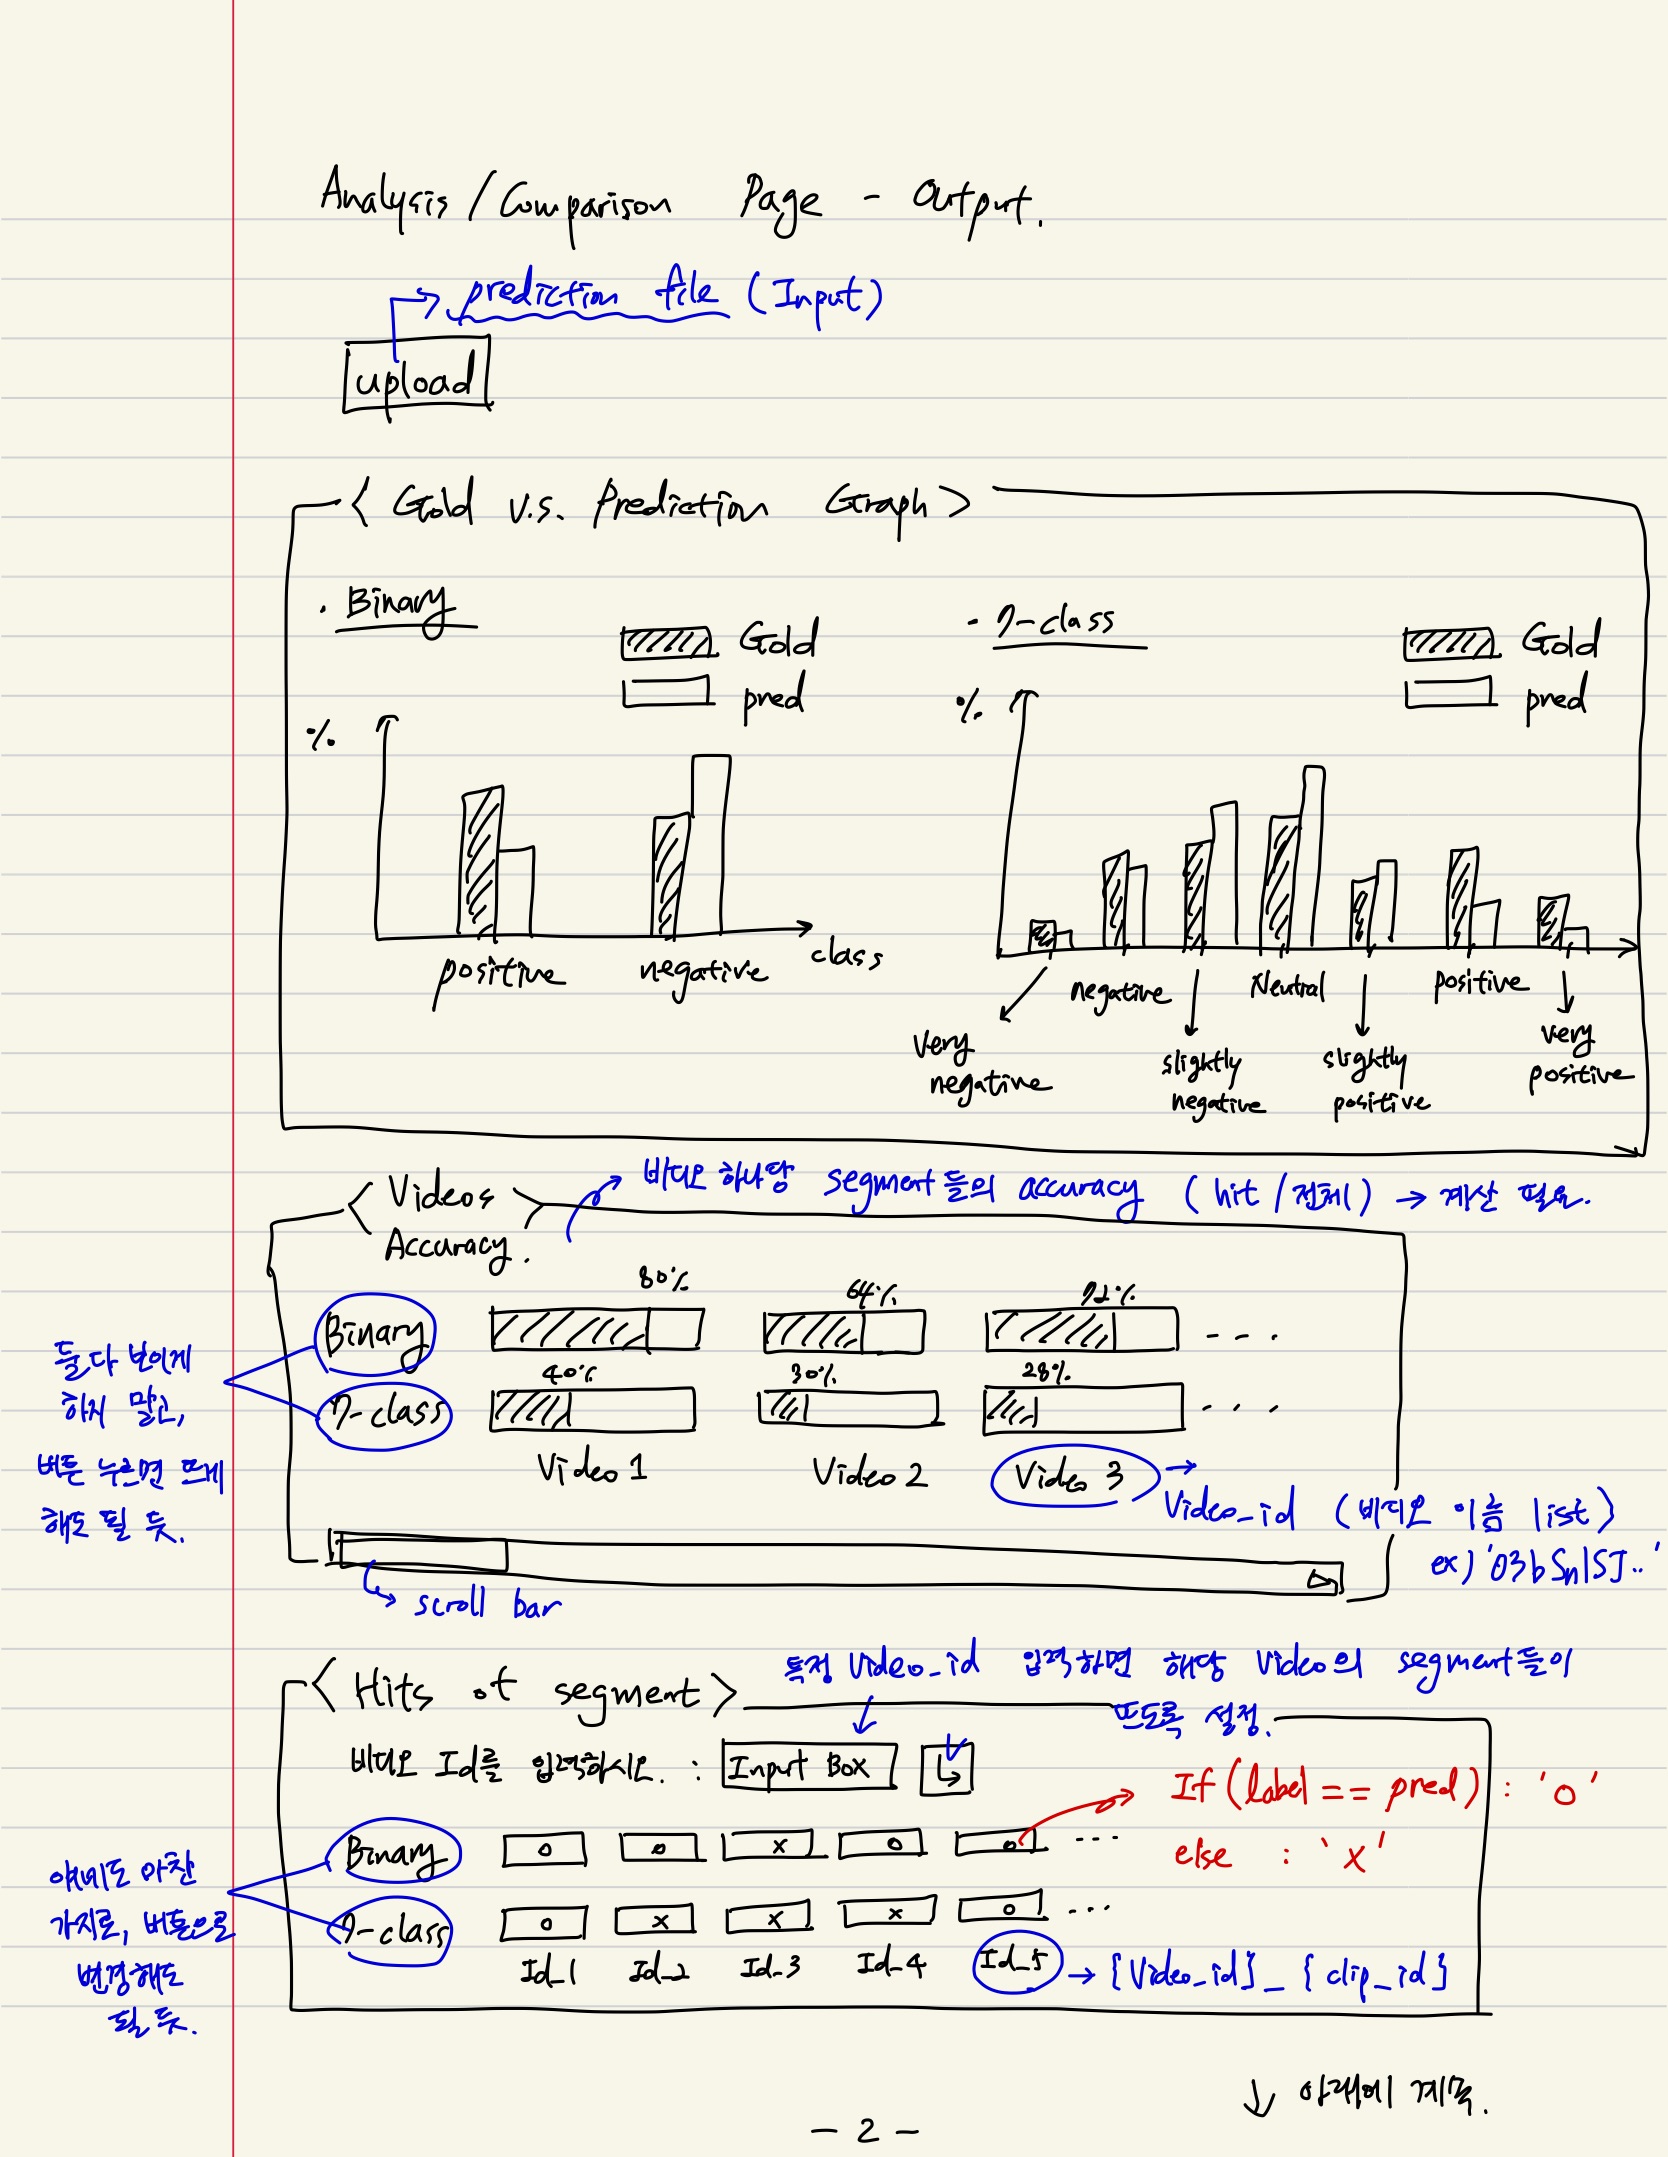 Analysis / Comparison Page - Output.
prediction file (Input)
upload
< Gold v.s. Prediction Graph >
· Binary
Gold
pred
%
positive
negative
class
- 7-class
Gold
pred
%
very negative
negative
slightly negative
Neutral
slightly positive
positive
very positive
< Videos Accuracy. >
비디오 하나당 segment들의 accuracy (hit / 전체) → 계산 필요.
80%
64%
72%
Binary
- - .
40%
30%
28%
7-class
. . .
Video 1
Video 2
Video 3
→ Video_id (비디오 이름 list)
ex) '03bSnISJ..'
둘다 보이게
하지 말고,
버튼 누르면 뜨게
해도 될 듯.
scroll bar
< Hits of segment >
특정 Video_id 입력하면 해당 Video의 segment들이
뜨도록 설정.
비디오 Id를 입력하시오. : Input Box
If (label == pred) : 'o'
else : 'x'
Binary o o x o o ...
7-class o x x x o ...
Id_1 Id_2 Id_3 Id_4 Id_5 → {Video_id}_{clip_id}
얘네도 마찬
가지로, 버튼으로
변경해도
될 듯.
↓ 아래에 계속.
- 2 -